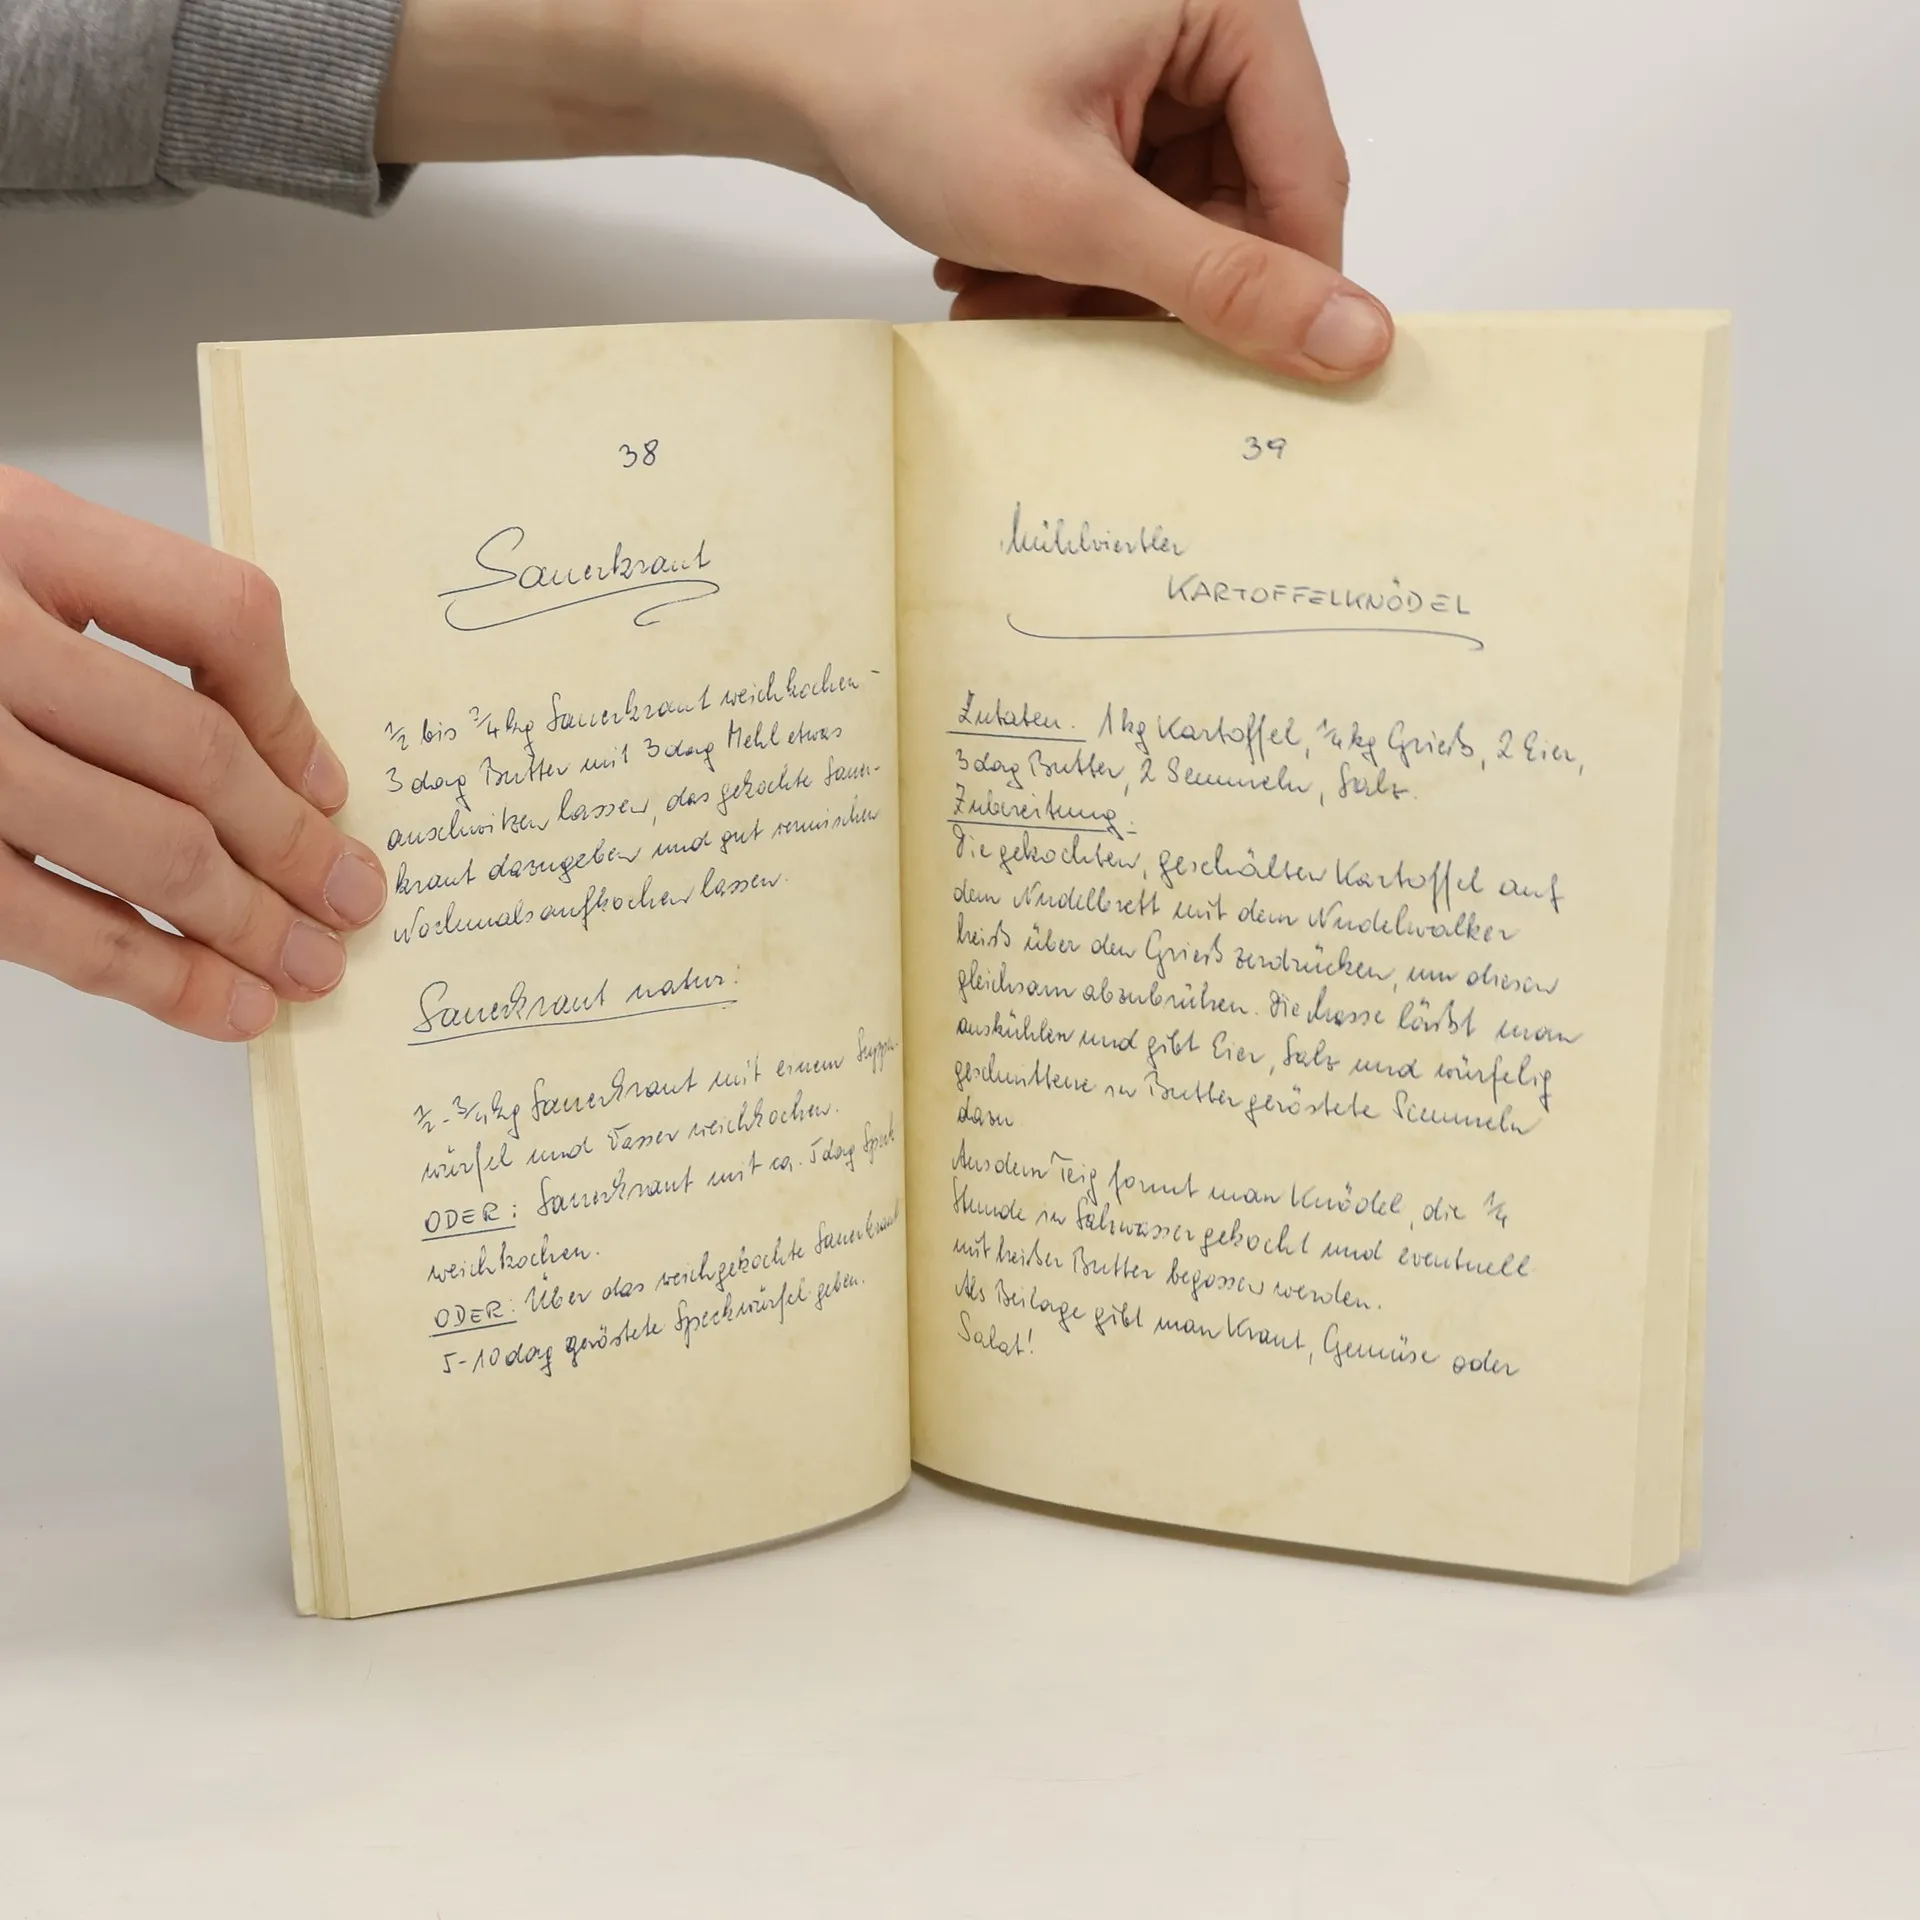 38
Sauerkraut
1/2 bis 3/4 kg Sauerkraut weichkochen -
3 dag Butter mit 3 dag Mehl etwas
anschwitzen lassen, das gekochte Sauer-
kraut dazugeben und gut vermischen
Nochmals aufkochen lassen.
Sauerkraut natur:
1/2 - 3/4 kg Sauerkraut mit einem Suppen-
würfel und Wasser weichkochen.
ODER: Sauerkraut mit ca. 5 dag Speck
weichkochen.
ODER: Über das weichgekochte Sauerkraut
5-10 dag geröstete Speckwürfel geben.
39
Mühlviertler
KARTOFFELKNÖDEL
Zutaten: 1 kg Kartoffel, 1/4 kg Grieß, 2 Eier,
3 dag Butter, 2 Semmeln, Salz.
Zubereitung:
Die gekochten, geschälten Kartoffel auf
dem Nudelbrett mit dem Nudelwalker
heiß über den Grieß zerdrücken, um diesen
gleichsam abzubrühen. Die Masse läßt man
auskühlen und gibt Eier, Salz und würfelig
geschnittene in Butter geröstete Semmeln
dazu
Aus dem Teig formt man Knödel, die 1/4
Stunde in Salzwasser gekocht und eventuell
mit heißer Butter begossen werden.
Als Beilage gibt man Kraut, Gemüse oder
Salat!